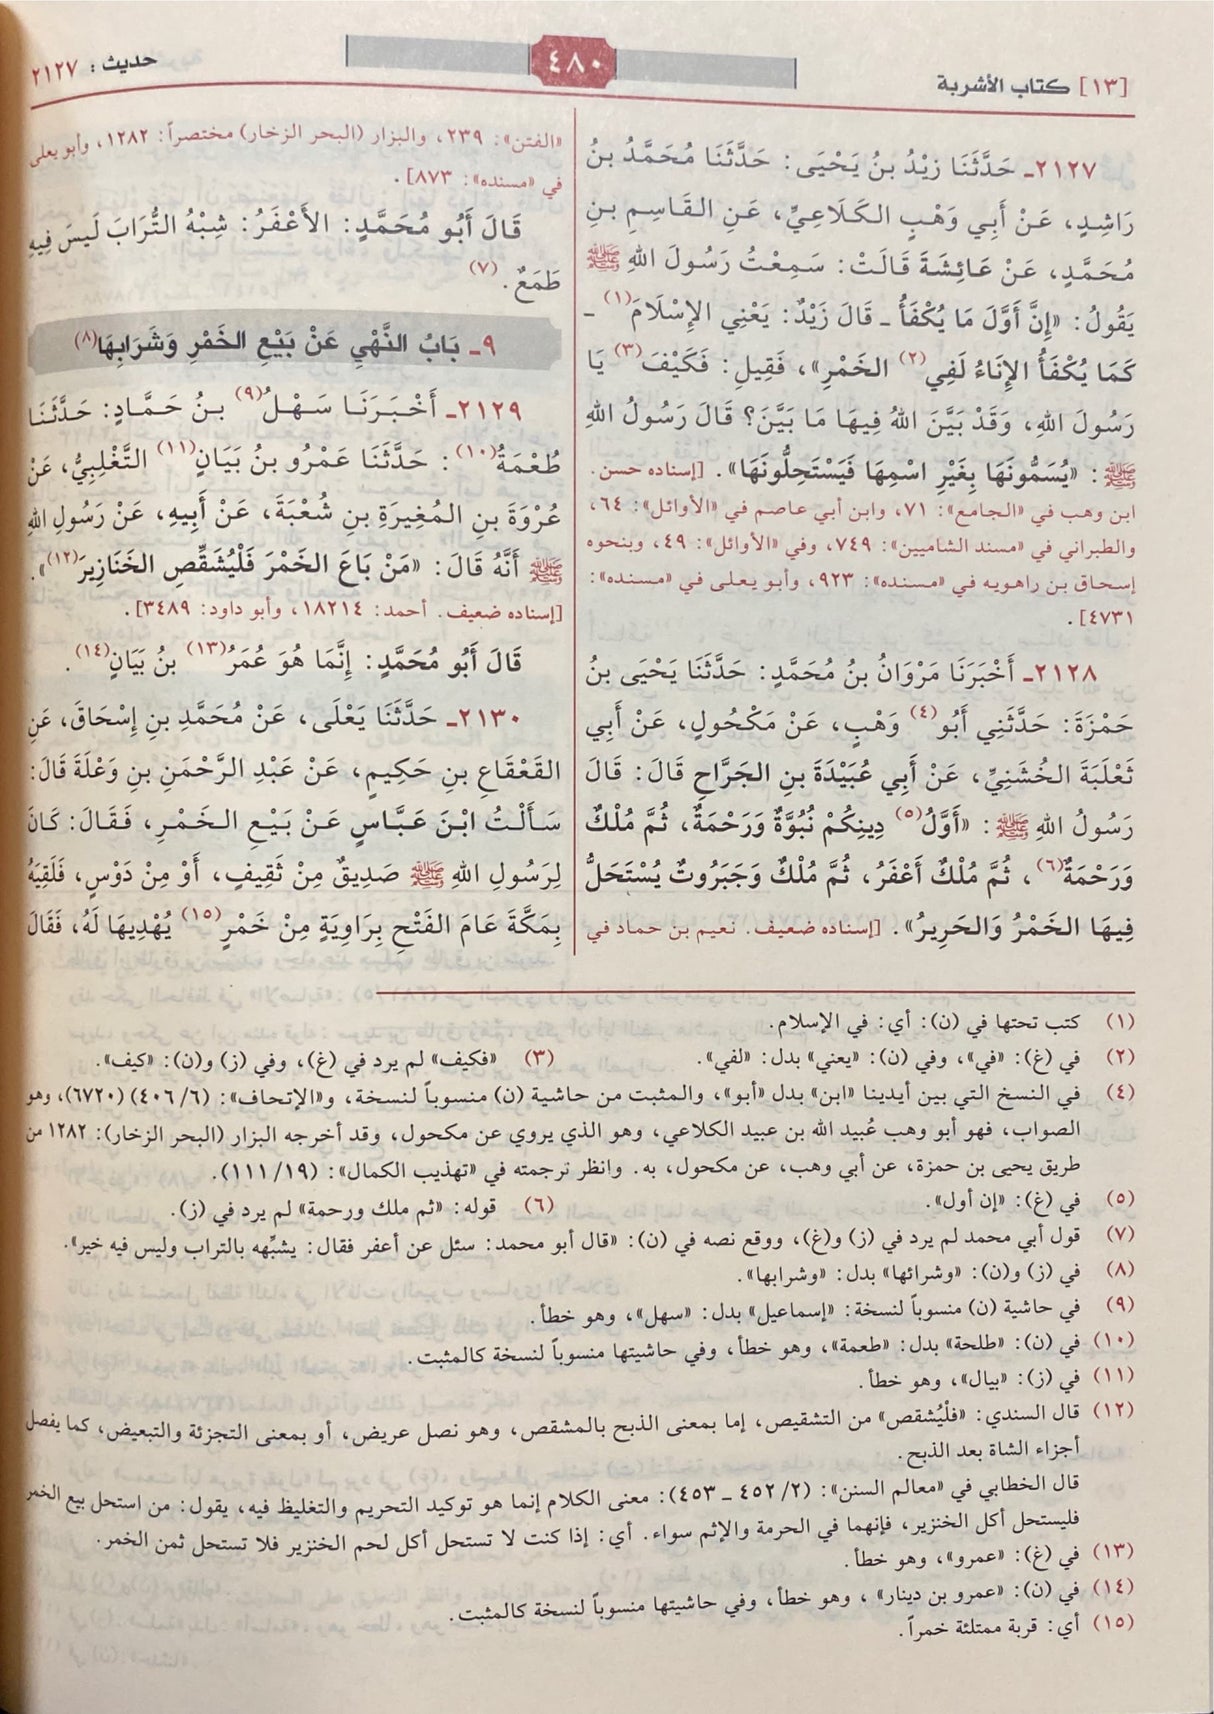 [١٣] كتاب الأشربة
٤٨٠
حديث : ٢١٢٧
٢١٢٧ـ حَدَّثَنَا زَيْدُ بنُ يَحْيَى: حَدَّثَنَا مُحَمَّدُ بنُ
رَاشِدٍ، عَنْ أَبِي وَهْبٍ الكَلَاعِيِّ، عَنِ القَاسِمِ بنِ
مُحَمَّدٍ، عَنْ عَائِشَةَ قَالَتْ: سَمِعْتُ رَسُولَ اللهِ ﷺ
يَقُولُ: «إِنَّ أَوَّلَ مَا يُكْفَأُ ـ قَالَ زَيْدٌ: يَعْنِي الإِسْلَامَ(١) ـ
كَمَا يُكْفَأُ الإِنَاءُ لَفِي(٢) الخَمْرِ»، فَقِيلِ: فَكَيْفَ(٣) يَا
رَسُولَ اللهِ، وَقَدْ بَيَّنَ اللهُ فِيهَا مَا بَيَّنَ؟ قَالَ رَسُولُ اللهِ
ﷺ: «يُسَمُّونَهَا بِغَيْرِ اسْمِهَا فَيَسْتَحِلُّونَهَا». [إسناده حسن.
ابن وهب في «الجامع»: ٧١، وابن أبي عاصم في «الأوائل»: ٦٤،
والطبراني في «مسند الشاميين»: ٧٤٩، وفي «الأوائل»: ٤٩، وبنحوه
إسحاق بن راهويه في «مسنده»: ٩٢٣، وأبو يعلى في «مسنده»:
٤٧٣١].
٢١٢٨ـ أَخْبَرَنَا مَرْوَانُ بنُ مُحَمَّدٍ: حَدَّثَنَا يَحْيَى بنُ
حَمْزَةَ: حَدَّثَنِي أَبُو(٤) وَهْبٍ، عَنْ مَكْحُولٍ، عَنْ أَبِي
ثَعْلَبَةَ الخُشَنِيِّ، عَنْ أَبِي عُبَيْدَةَ بنِ الجَرَّاحِ قَالَ: قَالَ
رَسُولُ اللهِ ﷺ: «أَوَّلُ(٥) دِينِكُمْ نُبُوَّةٌ وَرَحْمَةٌ، ثُمَّ مُلْكٌ
وَرَحْمَةٌ(٦)، ثُمَّ مُلْكٌ أَعْفَرُ، ثُمَّ مُلْكٌ وَجَبَرُوتٌ يُسْتَحَلُّ
فِيهَا الخَمْرُ وَالحَرِيرُ». [إسناده ضعيف. نعيم بن حماد في
«الفتن»: ٢٣٩، والبزار (البحر الزخار) مختصراً: ١٢٨٢، وأبو يعلى
في «مسنده»: ٨٧٣].
قَالَ أَبُو مُحَمَّدٍ: الأَعْفَرُ: شِبْهُ التُّرَابَ لَيسَ فِيهِ
طَمَعٌ.(٧)
٩ـ بَابُ النَّهْيِ عَنْ بَيْعِ الخَمْرِ وَشَرَابِهَا(٨)
٢١٢٩ـ أَخْبَرَنَا سَهْلُ(٩) بنُ حَمَّادٍ: حَدَّثَنَا
طُعْمَةُ(١٠): حَدَّثَنَا عَمْرُو بنُ بَيَانٍ(١١) التَّغْلِبِيُّ، عَنْ
عُرْوَةَ بنِ المُغِيرَةِ بنِ شُعْبَةَ، عَنْ أَبِيهِ، عَنْ رَسُولِ اللهِ
ﷺ أَنَّهُ قَالَ: «مَنْ بَاعَ الخَمْرَ فَلْيُشَقِّصِ الخَنَازِيرَ(١٢)».
[إسناده ضعيف. أحمد: ١٨٢١٤، وأبو داود: ٣٤٨٩].
قَالَ أَبُو مُحَمَّدٍ: إِنَّمَا هُوَ عُمَرُ(١٣) بنُ بَيَانٍ(١٤).
٢١٣٠ـ حَدَّثَنَا يَعْلَى، عَنْ مُحَمَّدِ بنِ إِسْحَاقَ، عَنِ
القَعْقَاعِ بنِ حَكِيمٍ، عَنْ عَبْدِ الرَّحْمَنِ بنِ وَعْلَةَ قَالَ:
سَأَلْتُ ابْنَ عَبَّاسٍ عَنْ بَيْعِ الخَمْرِ، فَقَالَ: كَانَ
لِرَسُولِ اللهِ ﷺ صَدِيقٌ مِنْ ثَقِيفٍ، أَوْ مِنْ دَوْسٍ، فَلَقِيَهُ
بِمَكَّةَ عَامَ الفَتْحِ بِرَاوِيَةٍ مِنْ خَمْرٍ(١٥) يُهْدِيهَا لَهُ، فَقَالَ
(١) كتب تحتها في (ن): أي: في الإسلام.
(٢) في (غ): «في»، وفي (ن): «يعني» بدل: «لفي». (٣) «فكيف» لم يرد في (غ)، وفي (ز) و(ن): «كيف».
(٤) في النسخ التي بين أيدينا «ابن» بدل «أبو»، والمثبت من حاشية (ن) منسوباً لنسخة، و«الإتحاف»: (٤٠٦/٦) (٦٧٢٠)، وهو
الصواب، فهو أبو وهب عُبيد الله بن عبيد الكلاعي، وهو الذي يروي عن مكحول، وقد أخرجه البزار (البحر الزخار): ١٢٨٢ من
طريق يحيى بن حمزة، عن أبي وهب، عن مكحول، به. وانظر ترجمته في «تهذيب الكمال»: (١١١/١٩).
(٥) في (غ): «إن أول». (٦) قوله: «ثم ملك ورحمة» لم يرد في (ز).
(٧) قول أبي محمد لم يرد في (ز) و(غ)، ووقع نصه في (ن): «قال أبو محمد: سئل عن أعفر فقال: يشبِّهه بالتراب وليس فيه خير».
(٨) في (ز) و(ن): «وشرائها» بدل: «وشرابها».
(٩) في حاشية (ن) منسوباً لنسخة: «إسماعيل» بدل: «سهل»، وهو خطأ.
(١٠) في (ن): «طلحة» بدل: «طعمة»، وهو خطأ، وفي حاشيتها منسوباً لنسخة كالمثبت.
(١١) في (ز): «بيال»، وهو خطأ.
(١٢) قال السندي: «فلْيُشقص» من التشقيص، إما بمعنى الذبح بالمشقص، وهو نصل عريض، أو بمعنى التجزئة والتبعيض، كما يفصل
أجزاء الشاة بعد الذبح.
قال الخطابي في «معالم السنن»: (٢/ ٤٥٢ ـ ٤٥٣): معنى الكلام إنما هو توكيد التحريم والتغليظ فيه، يقول: من استحل بيع الخمر
فليستحل أكل الخنزير، فإنهما في الحرمة والإثم سواء. أي: إذا كنت لا تستحل أكل لحم الخنزير فلا تستحل ثمن الخمر.
(١٣) في (غ): «عمرو»، وهو خطأ.
(١٤) في (ن): «عمرو بن دينار»، وهو خطأ، وفي حاشيتها منسوباً لنسخة كالمثبت.
(١٥) أي: قربة ممتلئة خمراً.